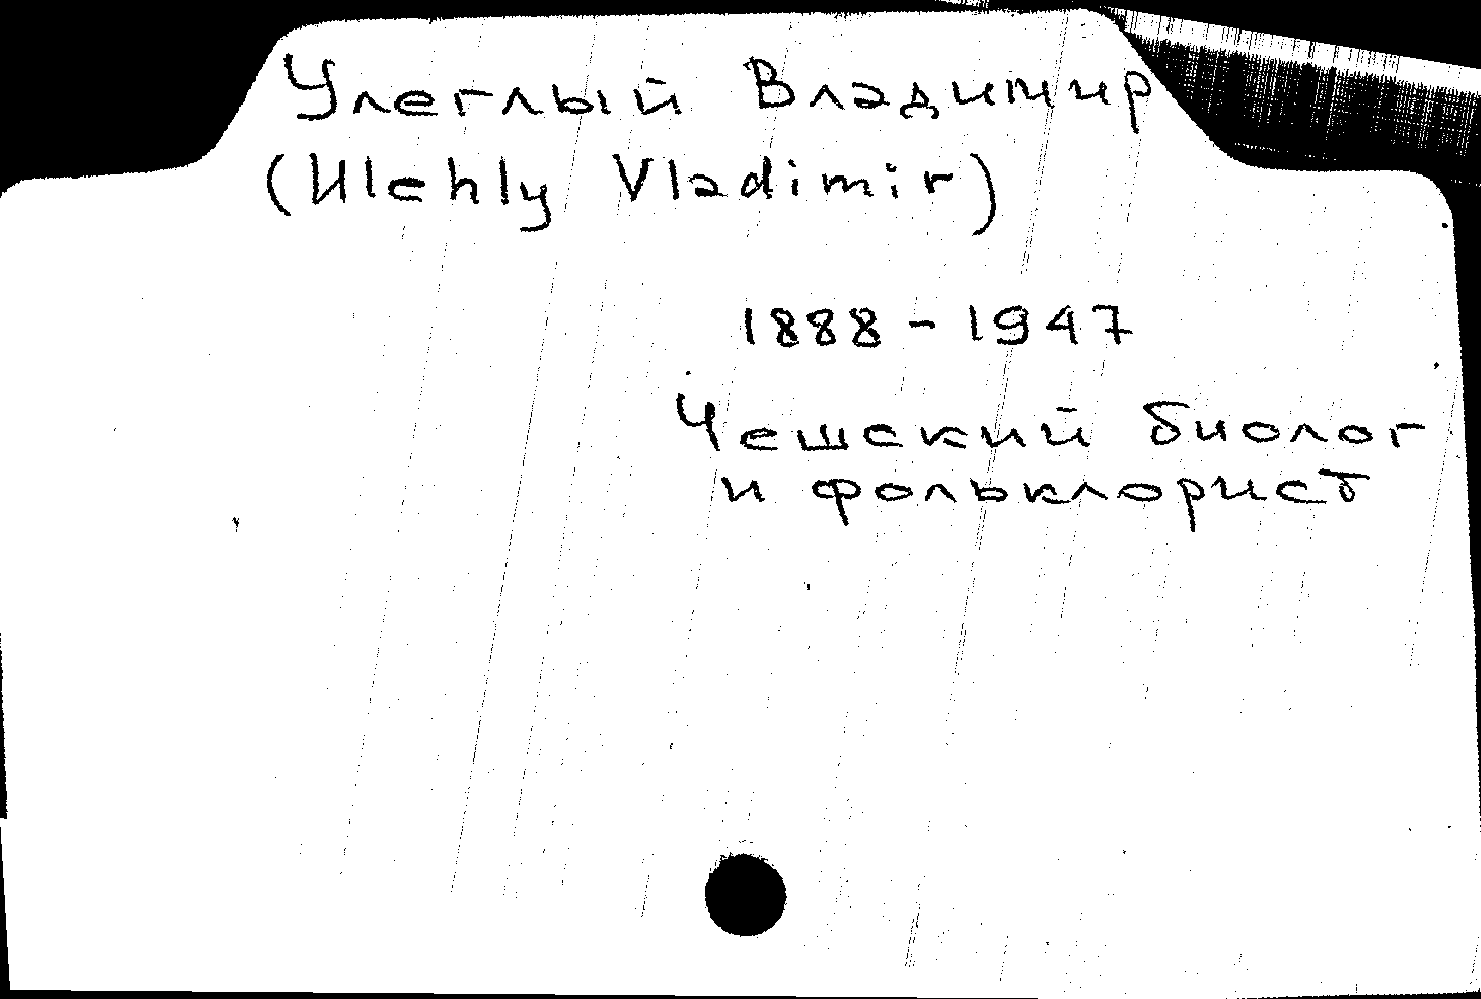 Улеглый Владимир
(Ulehly Vladimir)
1888 - 1947
Чешский биолог
и фольклорист